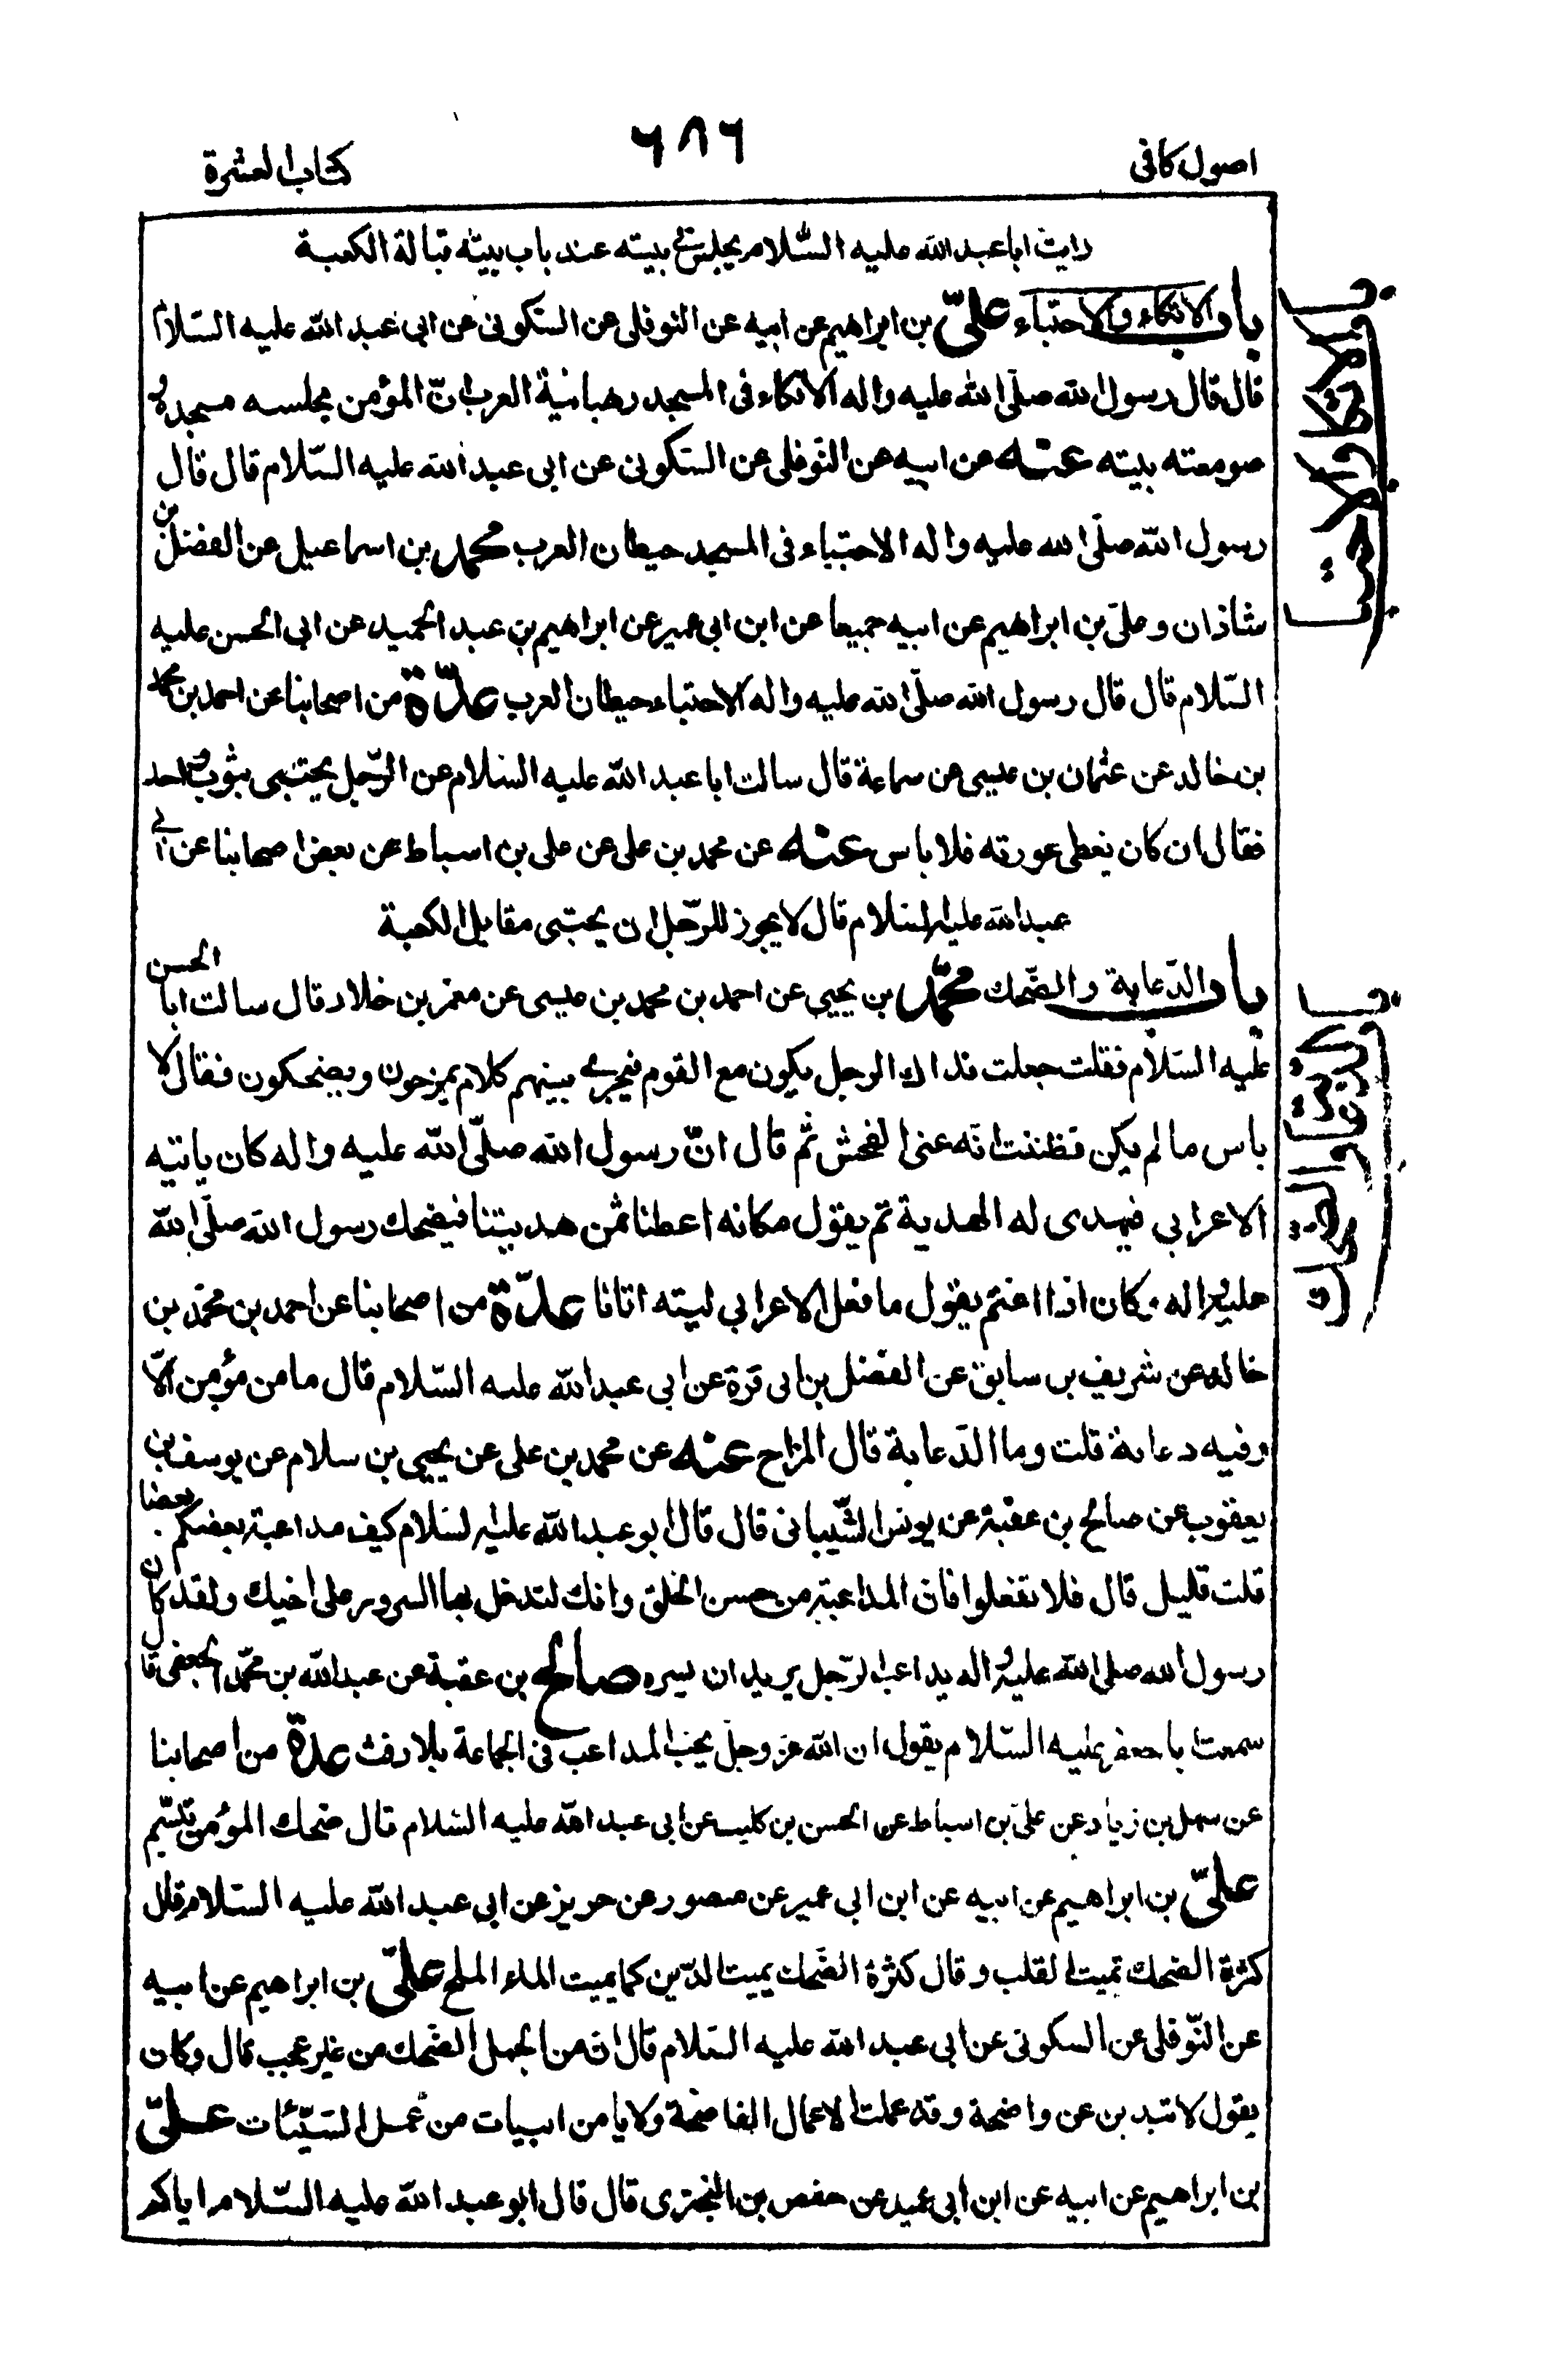 اصول كافى
٦٨٦
كتاب العشرة
رايت ابا عبد الله عليه السّلام يجلس في بيته عند باب بيته قبالة الكعبة
باب الاتكاء والاحتباء علىّ بن ابراهيم عن ابيه عن النوفلى عن السكونى عن ابى عبد الله عليه السّلام
قال قال رسول الله صلّى الله عليه واله الاتكاء فى المسجد رهبانية العرب انّ المؤمن مجلسه مسجده و
صومعته بيته عنه عن ابيه عن النّوفلى عن السكونى عن ابى عبد الله عليه السّلام قال قال
رسول الله صلّى الله عليه واله الاحتباء فى المسجد حيطان العرب محمد بن اسماعيل عن الفضل بن
شاذان وعلىّ بن ابراهيم عن ابيه جميعا عن ابن ابى عمير عن ابراهيم بن عبد الحميد عن ابى الحسن عليه
السّلام قال قال رسول الله صلّى الله عليه واله الاحتباء حيطان العرب عدّة من اصحابنا عن احمد بن محمد
بن خالد عن عثمان بن عيسى عن سماعة قال سالت ابا عبد الله عليه السّلام عن الرّجل يحتبى بثوب واحد
فقال ان كان يغطى عورته فلا باس عنه عن محمد بن على عن على بن اسباط عن بعض اصحابنا عن ابي
عبد الله عليه السّلام قال لا يجوز للرّجل ان يحتبى مقابل الكعبة
باب الدّعابة والضّحك محمّد بن يحيى عن احمد بن محمد بن عيسى عن معمر بن خلاد قال سالت ابا الحسن
عليه السّلام فقلت جعلت فداك الرجل يكون مع القوم فيجرى بينهم كلام يمزحون ويضحكون فقال لا
باس ما لم يكن فظننت انّه عنى الفحش ثم قال انّ رسول الله صلّى الله عليه واله كان ياتيه
الاعرابي فيهدى له الهدية ثم يقول مكانه اعطنا ثمن هديتنا فيضحك رسول الله صلّى الله
عليه واله وكان اذا اغتم يقول ما فعل الاعرابي ليته اتانا عدّة من اصحابنا عن احمد بن محمّد بن
خالد عن شريف بن سابق عن الفضل بن ابى قرة عن ابي عبد الله عليه السّلام قال ما من مؤمن الّا
وفيه دعابة قلت وما الدّعابة قال المزاح عنه عن محمد بن على عن يحيى بن سلام عن يوسف بن
يعقوب عن صالح بن عقبة عن يونس الشّيبانى قال قال ابو عبد الله عليه السّلام كيف مداعبة بعضكم بعضا
قلت قليل قال فلا تفعلوا فان المداعبة من حسن الخلق وانك لتدخل بها السرور على اخيك ولقد كان
رسول الله صلى الله عليه واله يداعب الرّجل يريد ان يسره صالح بن عقبة عن عبد الله بن محمّد الجعفى قال
سمعت ابا جعفر عليه السّلام يقول ان الله عز وجلّ يحب المداعب فى الجماعة بلا رفث عدة من اصحابنا
عن سهل بن زياد عن علىّ بن اسباط عن الحسن بن كليب عن ابى عبد الله عليه السّلام قال ضحك المؤمن تبسّم
علىّ بن ابراهيم عن ابيه عن ابن ابى عمير عن منصور عن حريز عن ابى عبد الله عليه السّلام قال
كثرة الضحك تميت القلب وقال كثرة الضّحك يميت الدّين كما يميت الماء الملح علىّ بن ابراهيم عن ابيه
عن النّوفلى عن السكونى عن ابى عبد الله عليه السّلام قال ان من الجهل الضّحك من غير عجب قال وكان
يقول لا تبدين عن واضحة وقد عملت الاعمال الفاضحة ولا يا من البيات من عمل السّيّئات علىّ
بن ابراهيم عن ابيه عن ابن ابى عمير عن حفص بن البخترى قال قال ابو عبد الله عليه السّلام اياكم
باب الاتكاء والاحتباء
باب الدعابة والضحك